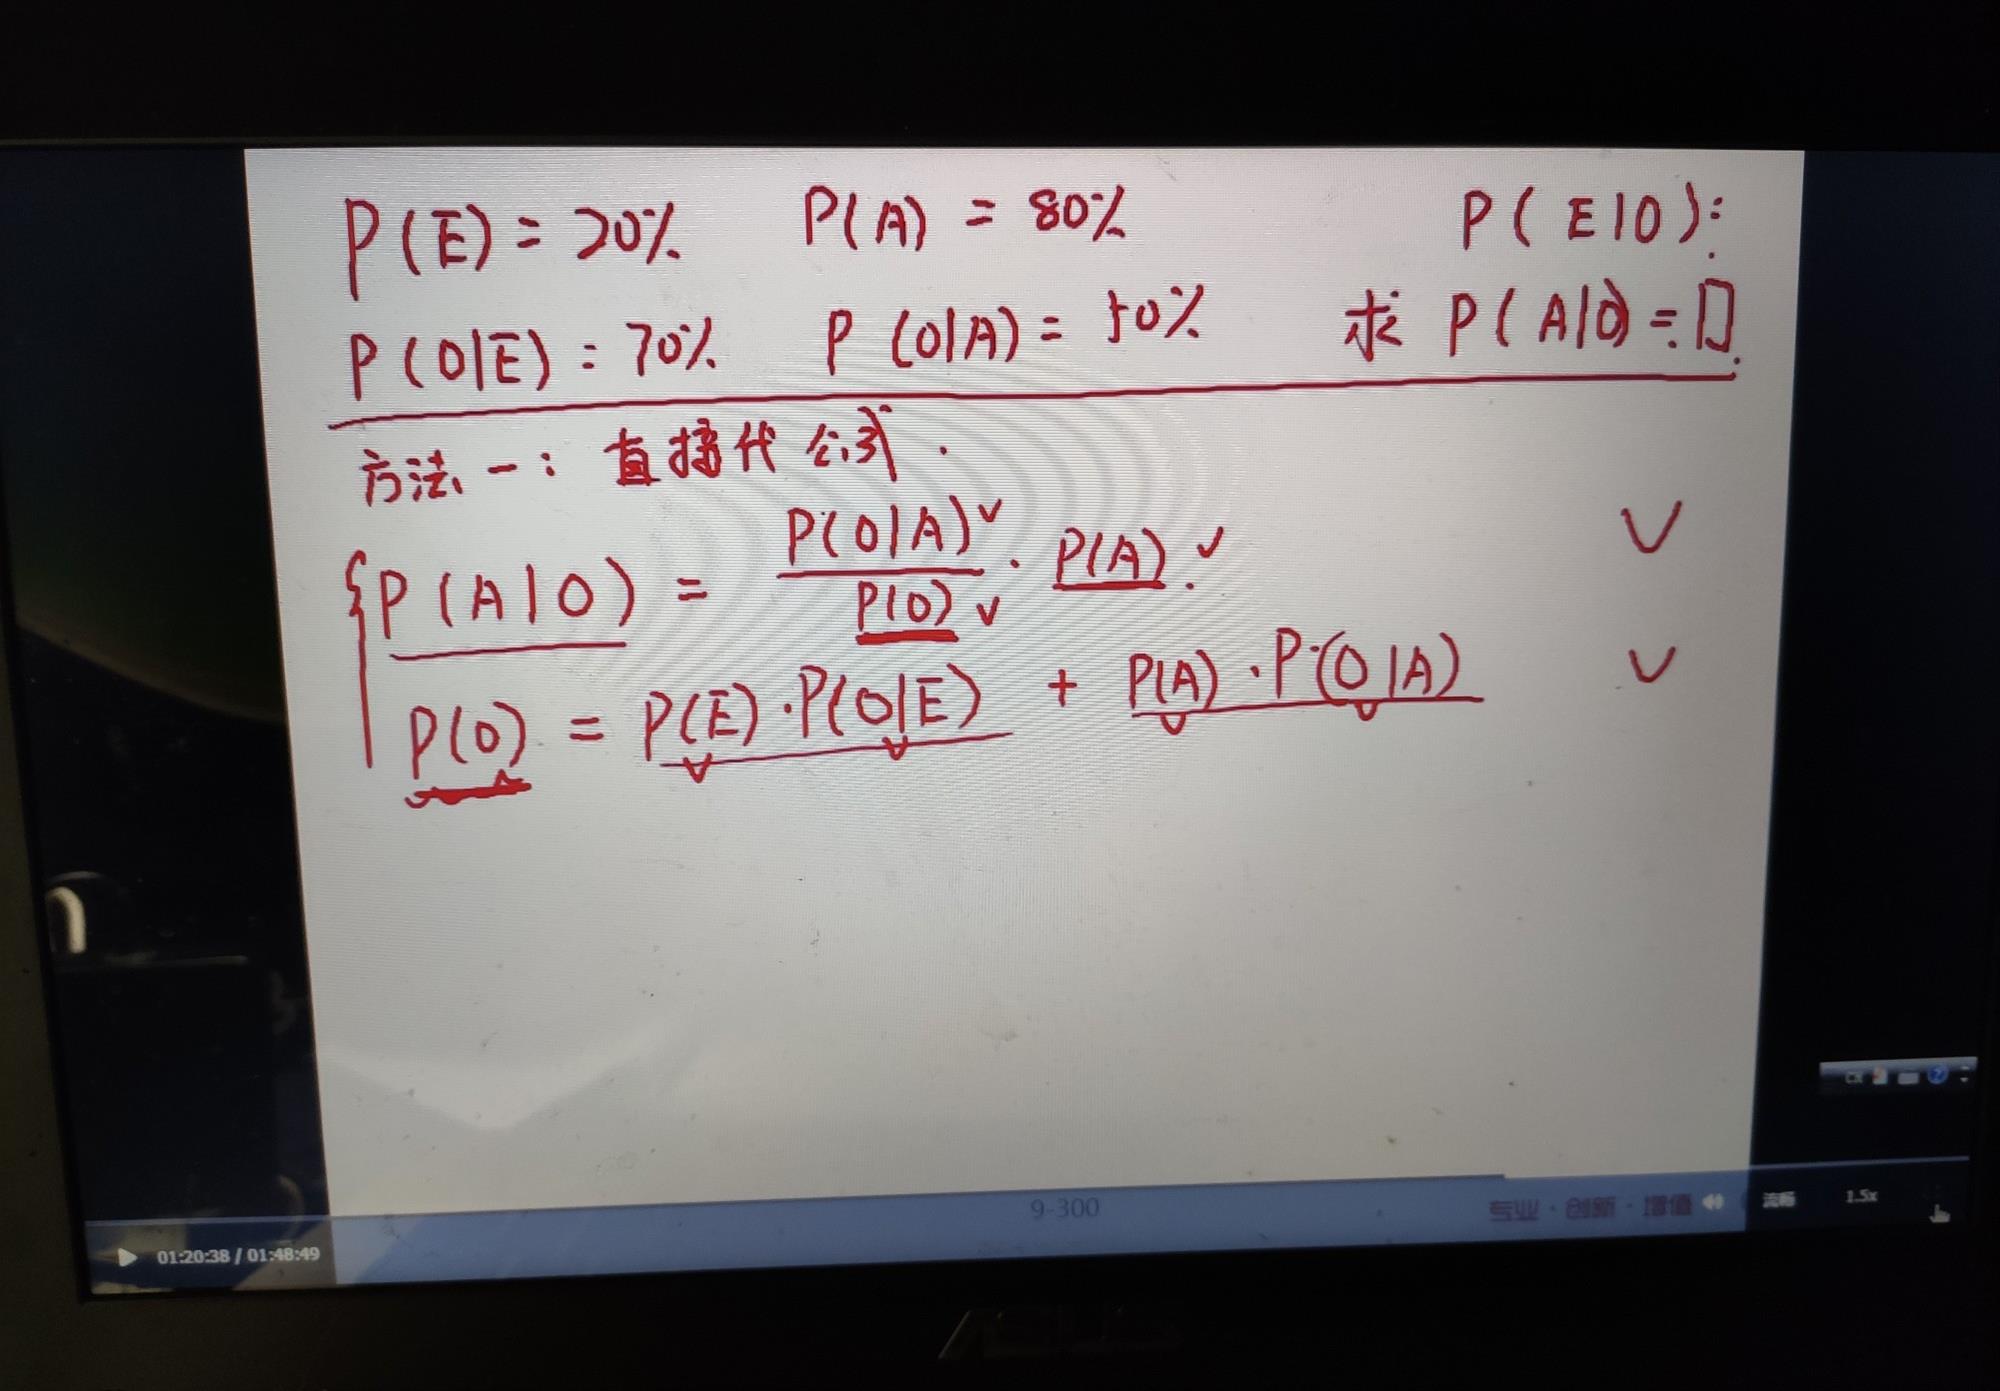 P(E) = 20% P(A) = 80% P(E|O):
P(O|E) = 70% P(O|A) = 50% 求 P(A|O) = □.
方法一: 直接代公式.
P(A|O) = P(O|A) / P(O) · P(A).
P(O) = P(E)·P(O|E) + P(A)·P(O|A)
9-300
专业·创新·增值
流畅
1.5x
01:20:38 / 01:48:49